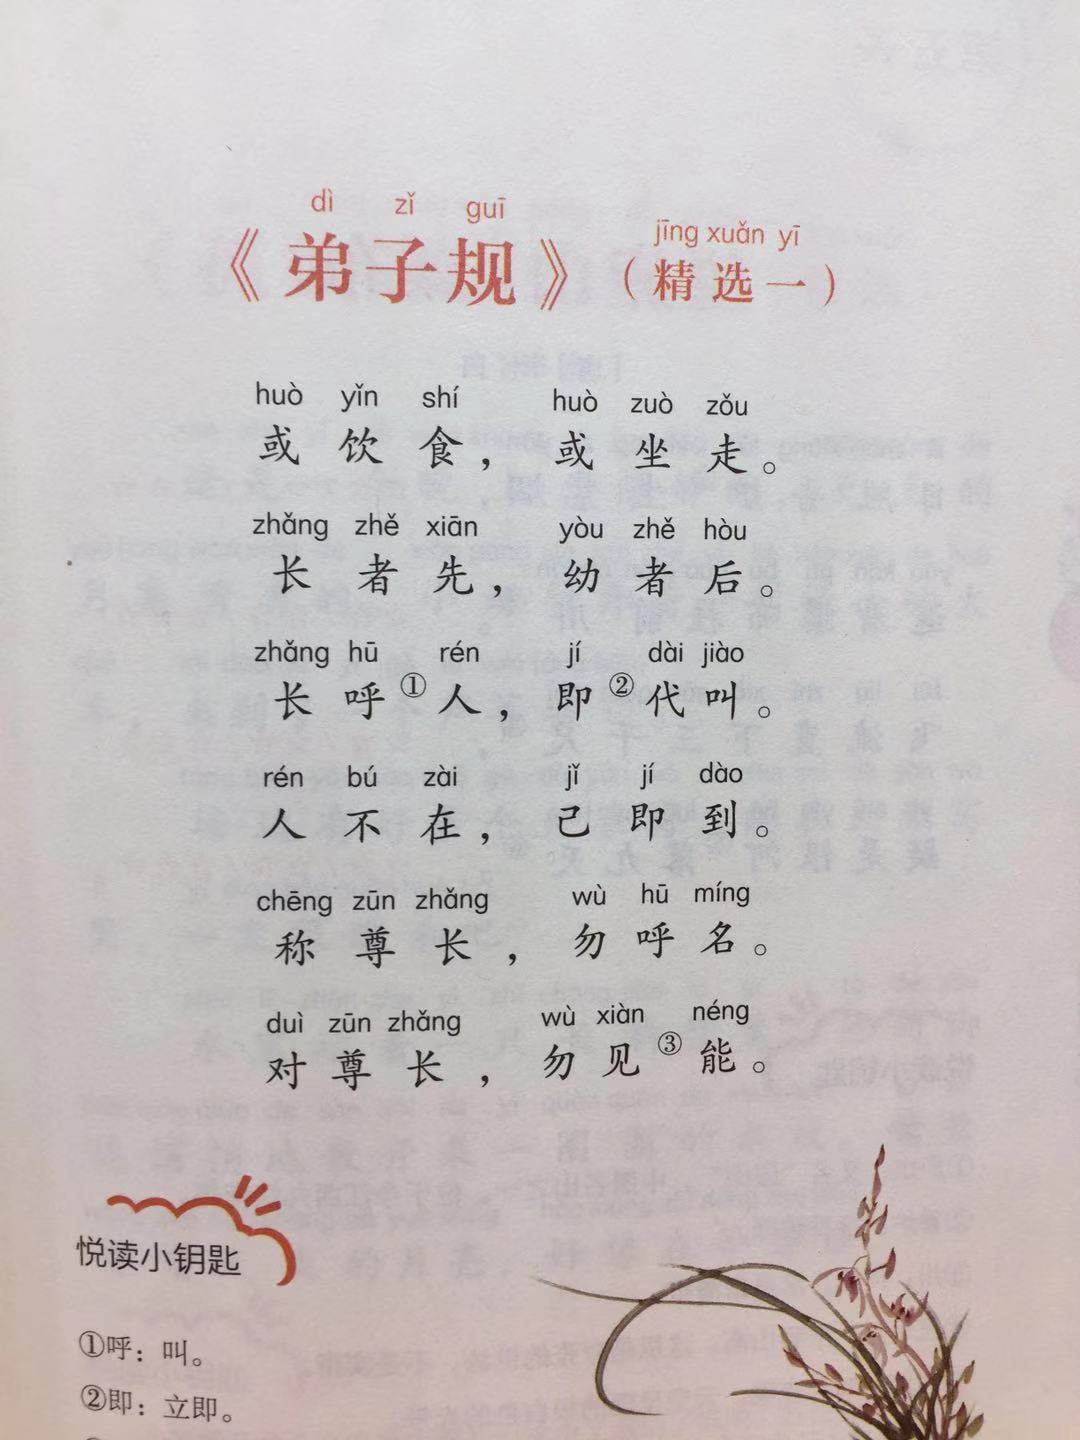 dì zǐ guī
《弟子规》
jīng xuǎn yī
（精选一）
huò yǐn shí huò zuò zǒu
或饮食，或坐走。
zhǎng zhě xiān yòu zhě hòu
长者先，幼者后。
zhǎng hū rén jí dài jiào
长呼①人，即②代叫。
rén bú zài jǐ jí dào
人不在，己即到。
chēng zūn zhǎng wù hū míng
称尊长，勿呼名。
duì zūn zhǎng wù xiàn néng
对尊长，勿见③能。
悦读小钥匙
①呼：叫。
②即：立即。